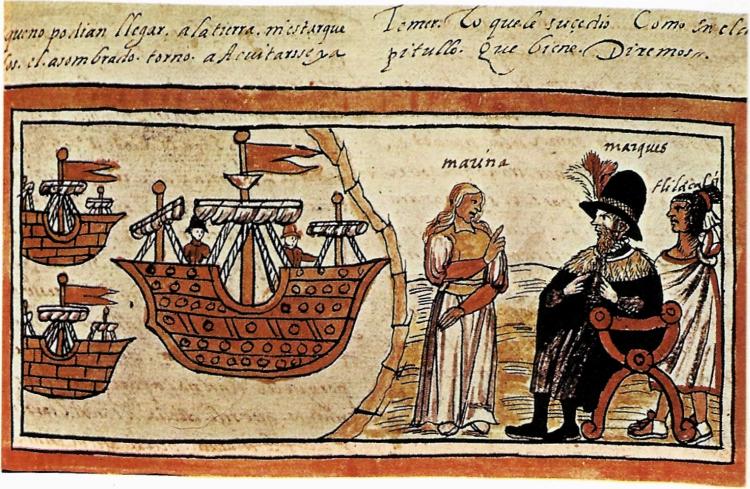 queno podian llegar. alatierra.
el. asombrado. torno. a Acuitarsse ya
Temer. Lo quele suçedio. Como En elca
pitullo. Que biene. Diremos
marina
marques